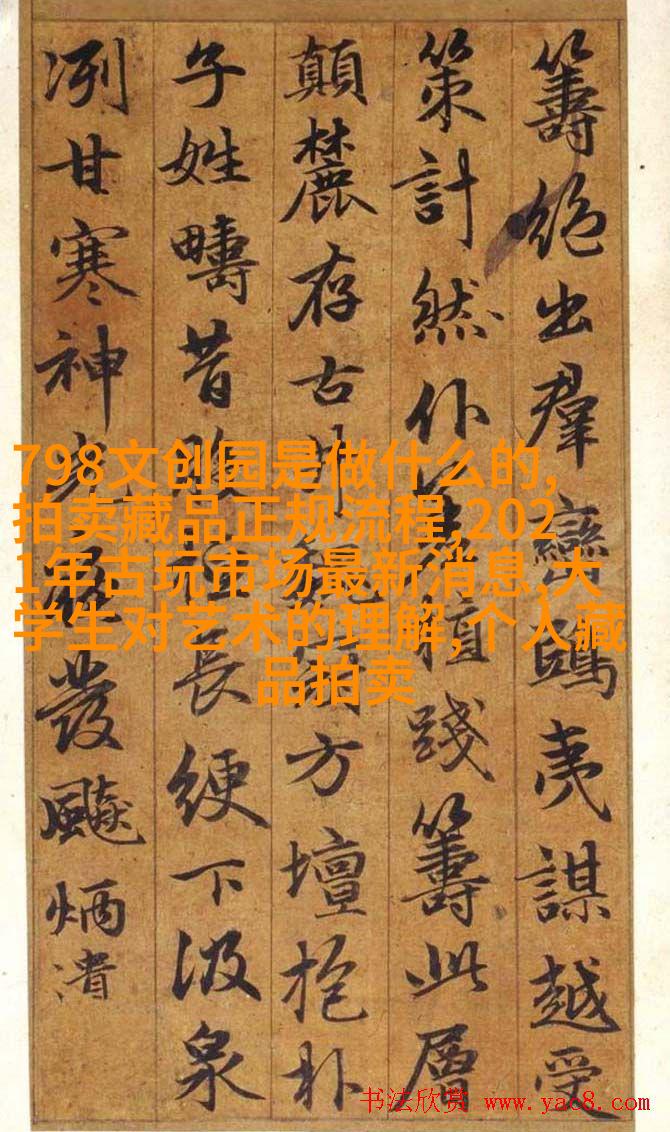 籌絶出羣鴟夷謀越受
策計然植踐籌此層
顛麓存古方壇抱朴
子姓疇昔長綆下汲泉
冽甘寒神發飈炳潰
798文创园是做什么的,
拍卖藏品正规流程,202
1年古玩市场最新消息,大
学生对艺术的理解,个人藏
品拍卖
书法欣赏 www.yac8.com